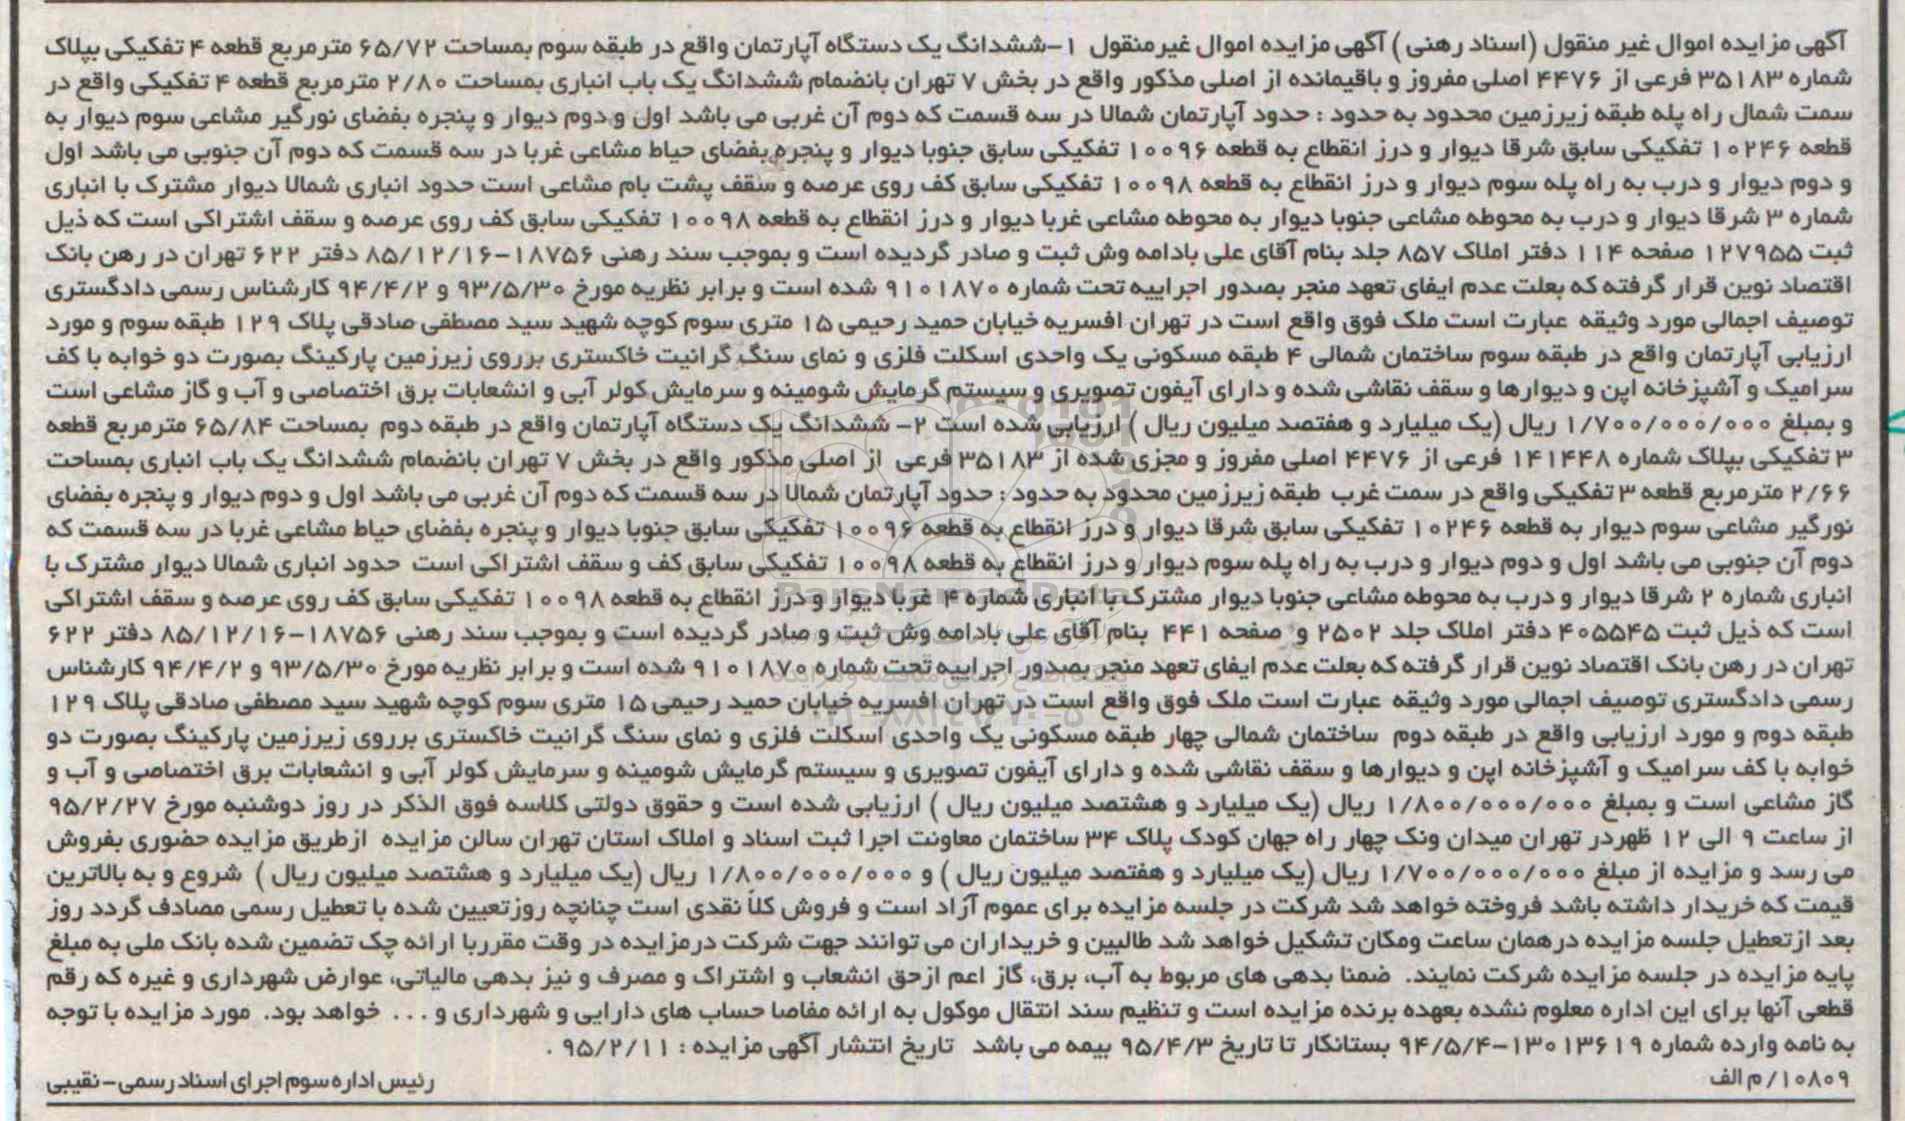 آگهی مزایده اموال غیر منقول (اسناد رهنی) آگهی مزایده اموال غیرمنقول ۱-ششدانگ یک دستگاه آپارتمان واقع در طبقه سوم بمساحت ۶۵/۷۲ مترمربع قطعه ۴ تفکیکی بپلاک
شماره ۳۵۱۸۳ فرعی از ۴۴۷۶ اصلی مفروز و باقیمانده از اصلی مذکور واقع در بخش ۷ تهران بانضمام ششدانگ یک باب انباری بمساحت ۲/۸۰ مترمربع قطعه ۴ تفکیکی واقع در
سمت شمال راه پله طبقه زیرزمین محدود به حدود : حدود آپارتمان شمالا در سه قسمت که دوم آن غربی می باشد اول و دوم دیوار و پنجره بفضای نورگیر مشاعی سوم دیوار به
قطعه ۱۰۲۴۶ تفکیکی سابق شرقا دیوار و درز انقطاع به قطعه ۱۰۰۹۶ تفکیکی سابق جنوبا دیوار و پنجره بفضای حیاط مشاعی غربا در سه قسمت که دوم آن جنوبی می باشد اول
و دوم دیوار و درب به راه پله سوم دیوار و درز انقطاع به قطعه ۱۰۰۹۸ تفکیکی سابق کف روی عرصه و سقف پشت بام مشاعی است حدود انباری شمالا دیوار مشترک با انباری
شماره ۳ شرقا دیوار و درب به محوطه مشاعی جنوبا دیوار به محوطه مشاعی غربا دیوار و درز انقطاع به قطعه ۱۰۰۹۸ تفکیکی سابق کف روی عرصه و سقف اشتراکی است که ذیل
ثبت ۱۲۷۹۵۵ صفحه ۱۱۴ دفتر املاک ۸۵۷ جلد بنام آقای علی بادامه وش ثبت و صادر گردیده است و بموجب سند رهنی ۱۸۷۵۶-۸۵/۱۲/۱۶ دفتر ۶۲۲ تهران در رهن بانک
اقتصاد نوین قرار گرفته که بعلت عدم ایفای تعهد منجر بصدور اجراییه تحت شماره ۹۱۰۱۸۷۰ شده است و برابر نظریه مورخ ۹۳/۵/۳۰ و ۹۴/۴/۲ کارشناس رسمی دادگستری
توصیف اجمالی مورد وثیقه عبارت است ملک فوق واقع است در تهران افسریه خیابان حمید رحیمی ۱۵ متری سوم کوچه شهید سید مصطفی صادقی پلاک ۱۲۹ طبقه سوم و مورد
ارزیابی آپارتمان واقع در طبقه سوم ساختمان شمالی ۴ طبقه مسکونی یک واحدی اسکلت فلزی و نمای سنگ گرانیت خاکستری برروی زیرزمین پارکینگ بصورت دو خوابه با کف
سرامیک و آشپزخانه اپن و دیوارها و سقف نقاشی شده و دارای آیفون تصویری و سیستم گرمایش شومینه و سرمایش کولر آبی و انشعابات برق اختصاصی و آب و گاز مشاعی است
و بمبلغ ۱/۷۰۰/۰۰۰/۰۰۰ ریال (یک میلیارد و هفتصد میلیون ریال ) ارزیابی شده است ۲- ششدانگ یک دستگاه آپارتمان واقع در طبقه دوم بمساحت ۶۵/۸۴ مترمربع قطعه
۳ تفکیکی بپلاک شماره ۱۴۱۴۴۸ فرعی از ۴۴۷۶ اصلی مفروز و مجزی شده از ۳۵۱۸۳ فرعی از اصلی مذکور واقع در بخش ۷ تهران بانضمام ششدانگ یک باب انباری بمساحت
۲/۶۶ مترمربع قطعه ۳ تفکیکی واقع در سمت غرب طبقه زیرزمین محدود به حدود : حدود آپارتمان شمالا در سه قسمت که دوم آن غربی می باشد اول و دوم دیوار و پنجره بفضای
نورگیر مشاعی سوم دیوار به قطعه ۱۰۲۴۶ تفکیکی سابق شرقا دیوار و درز انقطاع به قطعه ۱۰۰۹۶ تفکیکی سابق جنوبا دیوار و پنجره بفضای حیاط مشاعی غربا در سه قسمت که
دوم آن جنوبی می باشد اول و دوم دیوار و درب به راه پله سوم دیوار و درز انقطاع به قطعه ۱۰۰۹۸ تفکیکی سابق کف و سقف اشتراکی است حدود انباری شمالا دیوار مشترک با
انباری شماره ۲ شرقا دیوار و درب به محوطه مشاعی جنوبا دیوار مشترک با انباری شماره ۴ غربا دیوار و درز انقطاع به قطعه ۱۰۰۹۸ تفکیکی سابق کف روی عرصه و سقف اشتراکی
است که ذیل ثبت ۴۰۵۵۴۵ دفتر املاک جلد ۲۵۰۲ و صفحه ۴۴۱ بنام آقای علی بادامه وش ثبت و صادر گردیده است و بموجب سند رهنی ۱۸۷۵۶-۸۵/۱۲/۱۶ دفتر ۶۲۲
تهران در رهن بانک اقتصاد نوین قرار گرفته که بعلت عدم ایفای تعهد منجر بصدور اجراییه تحت شماره ۹۱۰۱۸۷۰ شده است و برابر نظریه مورخ ۹۳/۵/۳۰ و ۹۴/۴/۲ کارشناس
رسمی دادگستری توصیف اجمالی مورد وثیقه عبارت است ملک فوق واقع است در تهران افسریه خیابان حمید رحیمی ۱۵ متری سوم کوچه شهید سید مصطفی صادقی پلاک ۱۲۹
طبقه دوم و مورد ارزیابی واقع در طبقه دوم ساختمان شمالی چهار طبقه مسکونی یک واحدی اسکلت فلزی و نمای سنگ گرانیت خاکستری برروی زیرزمین پارکینگ بصورت دو
خوابه با کف سرامیک و آشپزخانه اپن و دیوارها و سقف نقاشی شده و دارای آیفون تصویری و سیستم گرمایش شومینه و سرمایش کولر آبی و انشعابات برق اختصاصی و آب و
گاز مشاعی است و بمبلغ ۱/۸۰۰/۰۰۰/۰۰۰ ریال (یک میلیارد و هشتصد میلیون ریال ) ارزیابی شده است و حقوق دولتی کلاسه فوق الذکر در روز دوشنبه مورخ ۹۵/۲/۲۷
از ساعت ۹ الی ۱۲ ظهردر تهران میدان ونک چهار راه جهان کودک پلاک ۳۴ ساختمان معاونت اجرا ثبت اسناد و املاک استان تهران سالن مزایده ازطریق مزایده حضوری بفروش
می رسد و مزایده از مبلغ ۱/۷۰۰/۰۰۰/۰۰۰ ریال (یک میلیارد و هفتصد میلیون ریال ) و ۱/۸۰۰/۰۰۰/۰۰۰ ریال (یک میلیارد و هشتصد میلیون ریال ) شروع و به بالاترین
قیمت که خریدار داشته باشد فروخته خواهد شد شرکت در جلسه مزایده برای عموم آزاد است و فروش کلاً نقدی است چنانچه روزتعیین شده با تعطیل رسمی مصادف گردد روز
بعد ازتعطیل جلسه مزایده درهمان ساعت ومکان تشکیل خواهد شد طالبین و خریداران می توانند جهت شرکت درمزایده در وقت مقرربا ارائه چک تضمین شده بانک ملی به مبلغ
پایه مزایده در جلسه مزایده شرکت نمایند. ضمنا بدهی های مربوط به آب، برق، گاز اعم ازحق انشعاب و اشتراک و مصرف و نیز بدهی مالیاتی، عوارض شهرداری و غیره که رقم
قطعی آنها برای این اداره معلوم نشده بعهده برنده مزایده است و تنظیم سند انتقال موکول به ارائه مفاصا حساب های دارایی و شهرداری و ... خواهد بود. مورد مزایده با توجه
به نامه وارده شماره ۱۳۰۱۳۶۱۹-۹۴/۵/۴ بستانکار تا تاریخ ۹۵/۴/۳ بیمه می باشد تاریخ انتشار آگهی مزایده : ۹۵/۲/۱۱ .
۱۰۸۰۹/م الف
رئیس اداره سوم اجرای اسناد رسمی-نقیبی